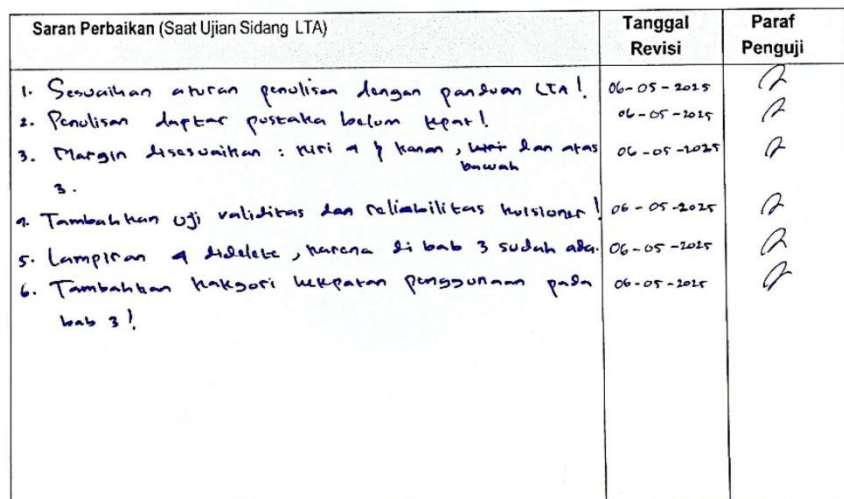 Saran Perbaikan (Saat Ujian Sidang LTA) Tanggal Revisi Paraf Penguji
1. Sesuaikan aturan penulisan dengan panduan LTA! 06-05-2025
2. Penulisan daftar pustaka belum tepat! 06-05-2025
3. Margin disesuaikan : kiri 4 ; kanan, dan atas 06-05-2025
bawah
3.
4. Tambahkan uji validitas dan reliabilitas kuisioner! 06-05-2025
5. Lampiran 4 didelete, karena di bab 3 sudah ada. 06-05-2025
6. Tambahkan kategori ketepatan penggunaan pada 06-05-2025
bab 3!